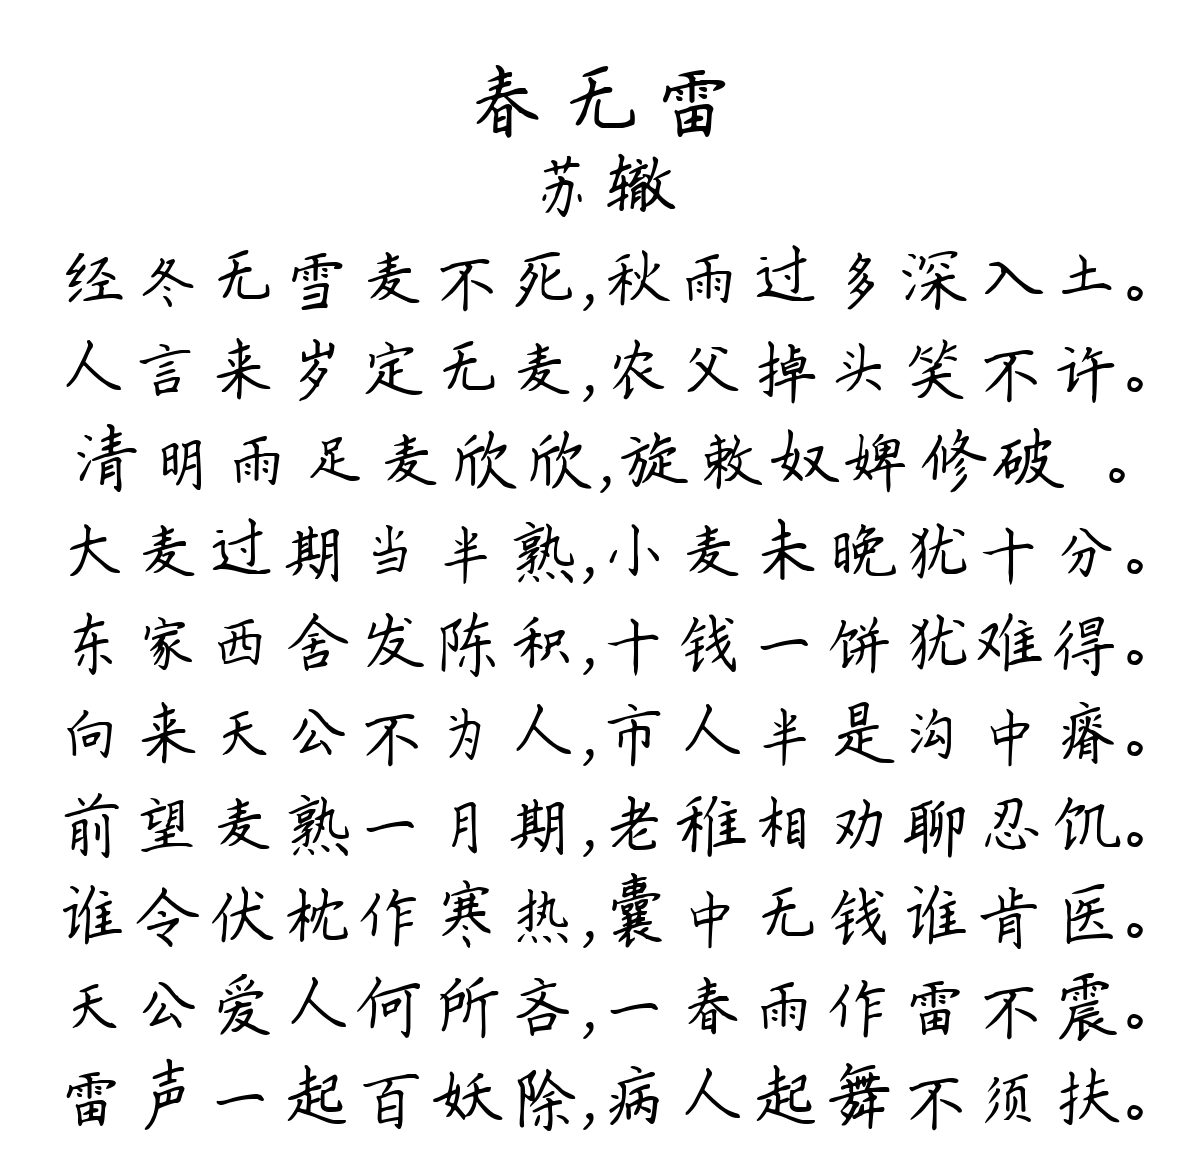 春无雷
苏辙
经冬无雪麦不死,秋雨过多深入土。
人言来岁定无麦,农父掉头笑不许。
清明雨足麦欣欣,旋敕奴婢修破 。
大麦过期当半熟,小麦未晚犹十分。
东家西舍发陈积,十钱一饼犹难得。
向来天公不为人,市人半是沟中瘠。
前望麦熟一月期,老稚相劝聊忍饥。
谁令伏枕作寒热,囊中无钱谁肯医。
天公爱人何所吝,一春雨作雷不震。
雷声一起百妖除,病人起舞不须扶。